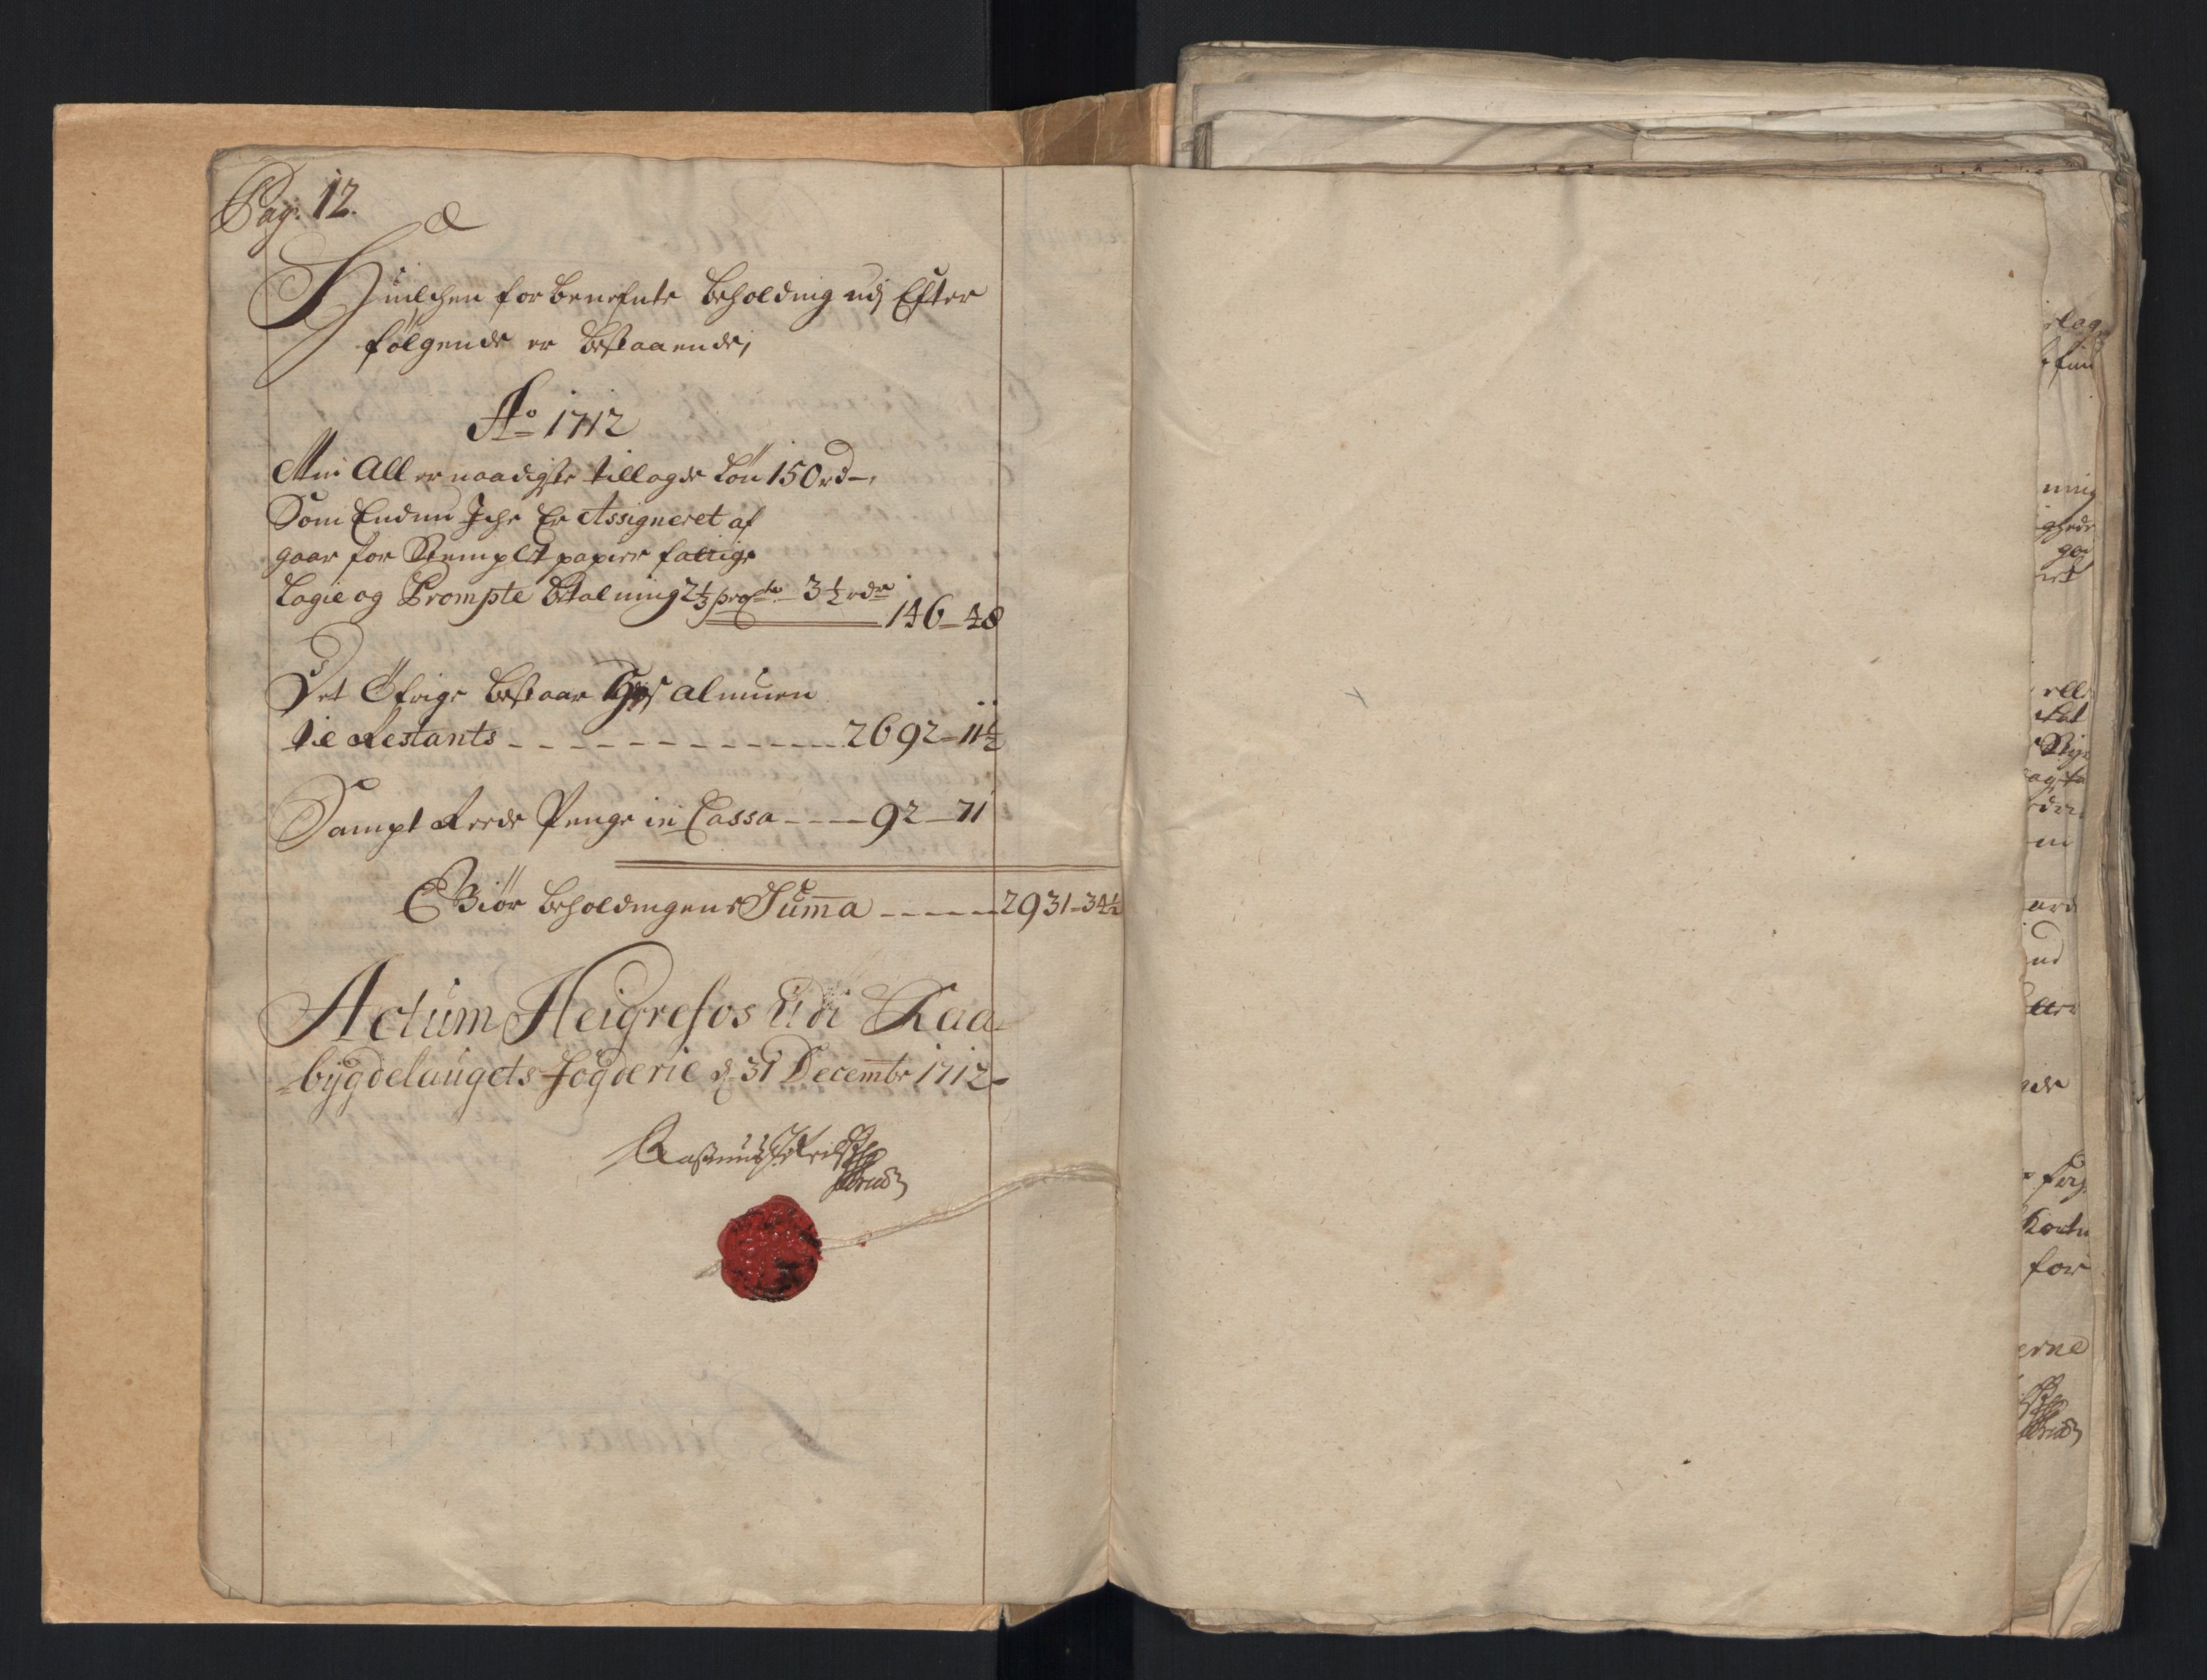 Pag: 12.
Huilchen forbenefnte beholding udj Efter
følgende er bestaaende,
Ao 1712
Min All ernaadigste tillagde Løn 150 rd
Som Endnu Iche Er Assigneret af
gaar for Stemplet papier fattige
Logie og Prompte betalning 2⅓ procto 3½ rdr
146 - 48
Det Øfrige bestaar Hos almuen
tie Restants - - - 2692 - 11½
Sampt Reede Penge in Cassa - - - - 92 - 71
Giør beholdingens Suma - - - - - 2931 - 34½
Actum Heigrefos Udi Raa-
bygdelaugets fogderie d. 31 Decembr 1712
rlag
fin
ning
ret
ard
nd
for
erne